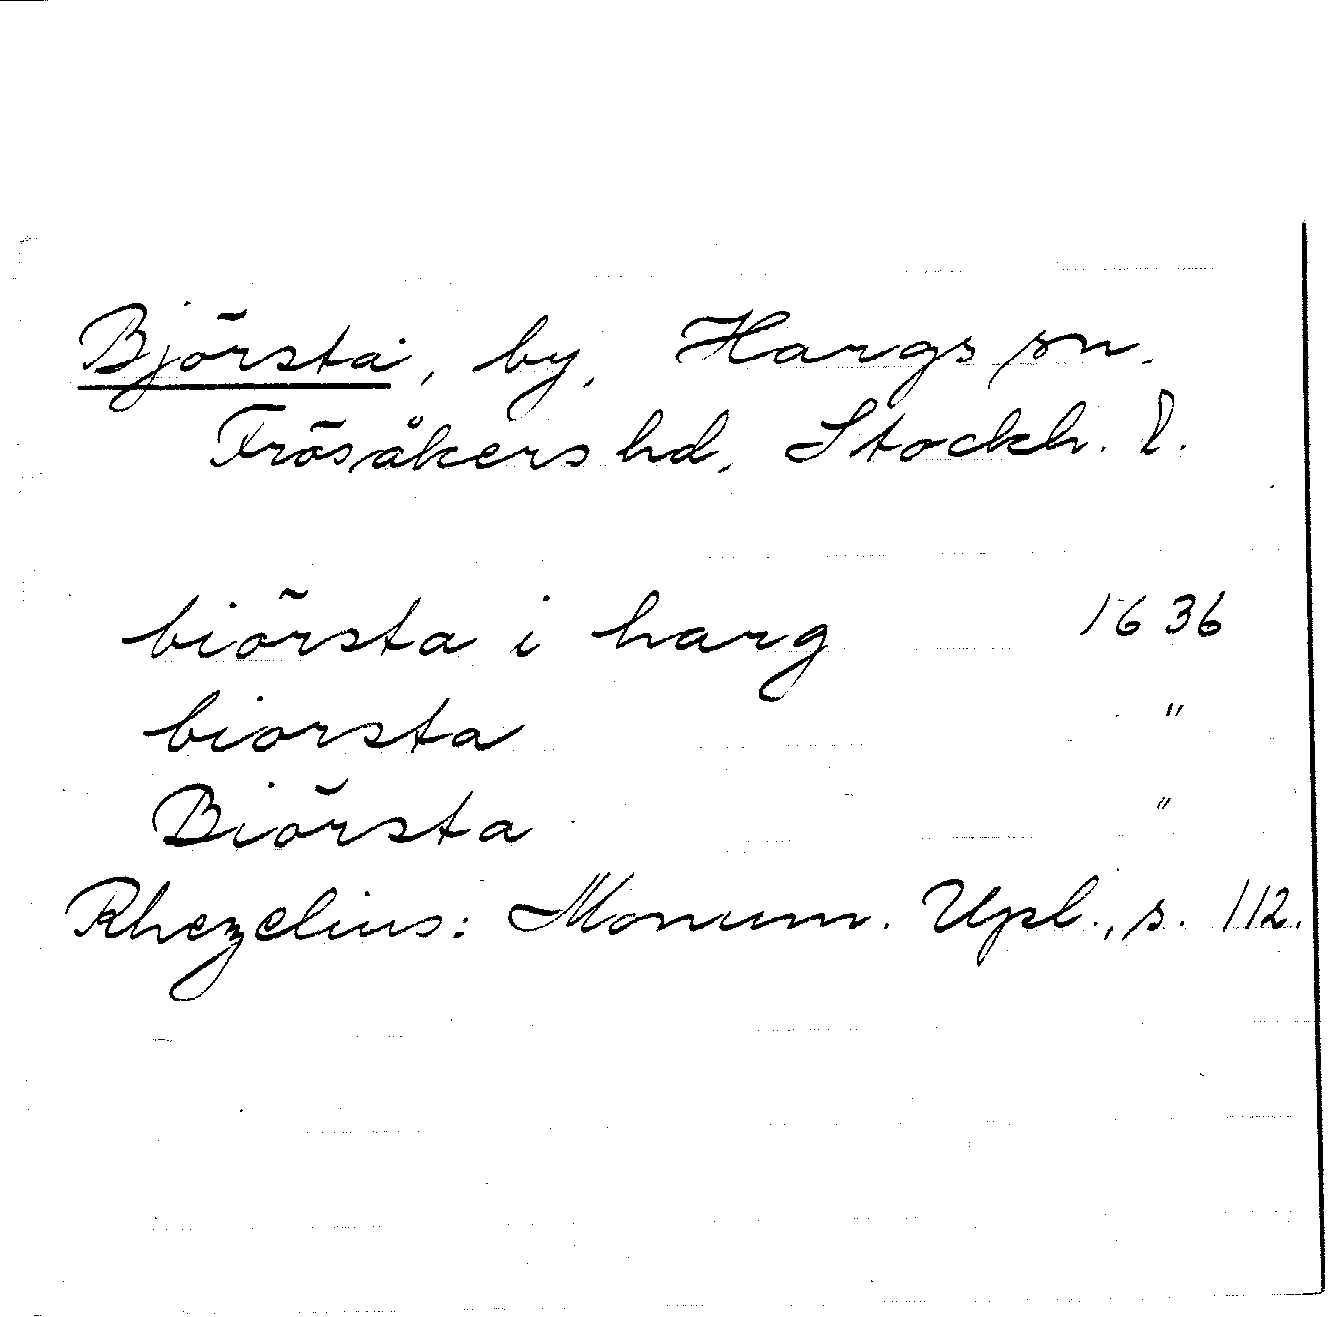 Björsta, by, Hargs sn.
Frösåkers hd, Stockh. l.
biörsta i harg 1636
biorsta "
Biörsta "
Rhezelius: Monum. Upl., s. 112.